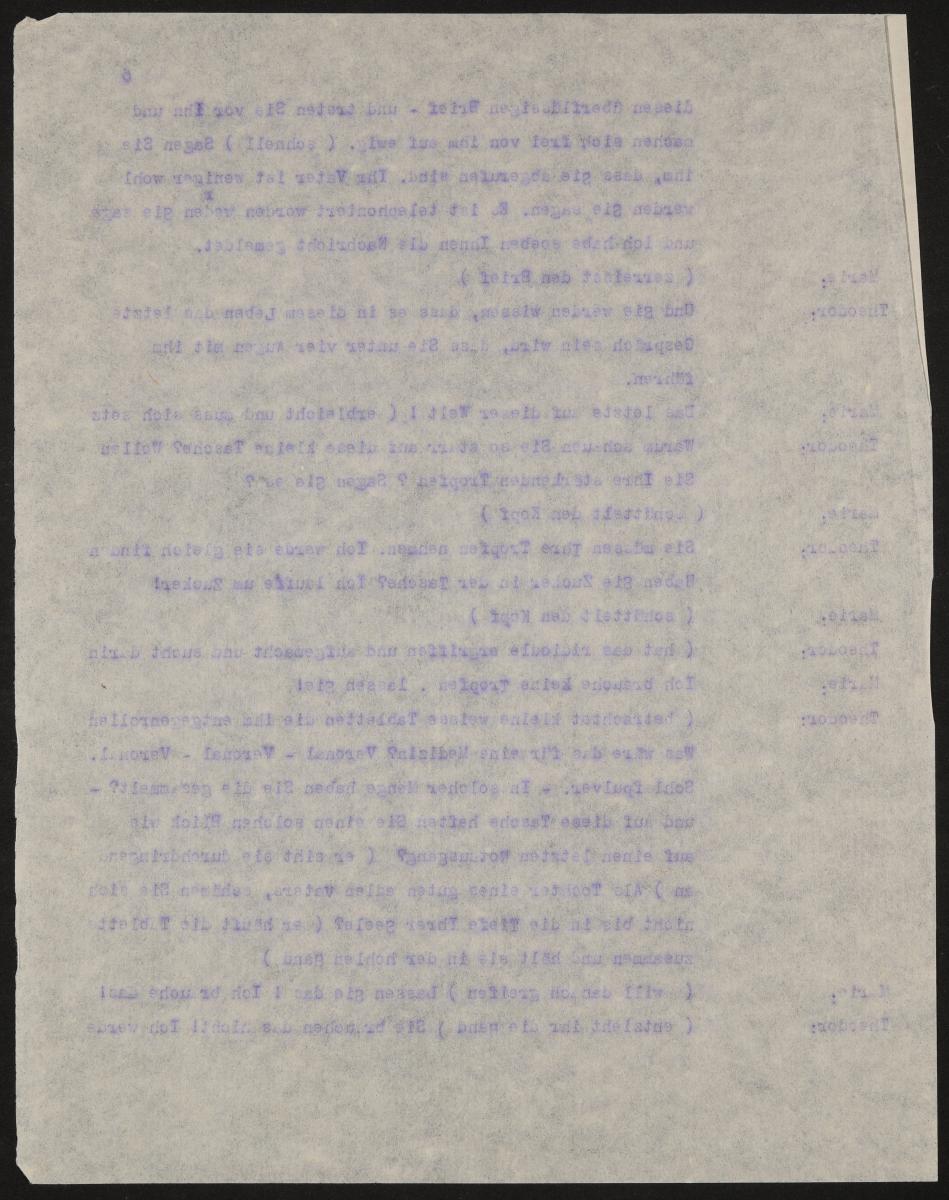 6
diesen überflüssigen Brief - und treten Sie vor Ihn und
machen sich frei von ihm auf ewig. ( schnell ) Sagen Sie
ihm, dass sie abgerufen sind. Ihr Vater ist weniger wohl
werden Sie sagen. Es ist telephoniert worden weden sie sage
und ich habe soeben Ihnen die Nachricht gemeldet.
Marie: ( zerreisst den Brief )
Theodor: Und sie werden wissen, dass es in diesem Leben das letzte
Gespräch sein wird, dass Sie unter vier Augen mit ihm
führen.
Marie: Das letzte auf dieser Welt ! ( erbleicht und muss sich setz
Theodor: Warum schauen Sie so starr auf diese kleine Tasche? Wollen
Sie Ihre stärkenden Tropfen ? Sagen sie es ?
Marie: ( schüttelt den Kopf )
Theodor: Sie müssen Ihre Tropfen nehmen. Ich werde sie gleich finden
Haben Sie Zucker in der Tasche? Ich laufe um Zucker!
Marie: ( schüttelt den Kopf )
Theodor: ( hat das ridicule ergriffen und aufgemacht und sucht darin
Marie: Ich brauche keine Tropfen . lassen sie!
Theodor: ( betrachtet kleine weisse Tabletten die ihm entgegenrollen
Was wäre das für eine Medizin? Veronal - Veronal - Veronal.
Schlafpulver. - In solcher Menge haben Sie die gesammelt? -
und auf diese Tasche haften Sie einen solchen Blick wie
auf einen letzten Notausgang? ( er siht sie durchdringend
an ) Als Tochter eines guten edlen Vaters, schämen Sie sich
nicht bis in die Tiefe Ihrer Seele? ( er häuft die Tablette
zusammen und hält sie in der hohlen Hand )
Marie: ( will danach greifen ) Lassen sie das ! Ich brauche das!
Theodor: ( entzieht ihr die Hand ) Sie brauchen das nicht! Ich werde